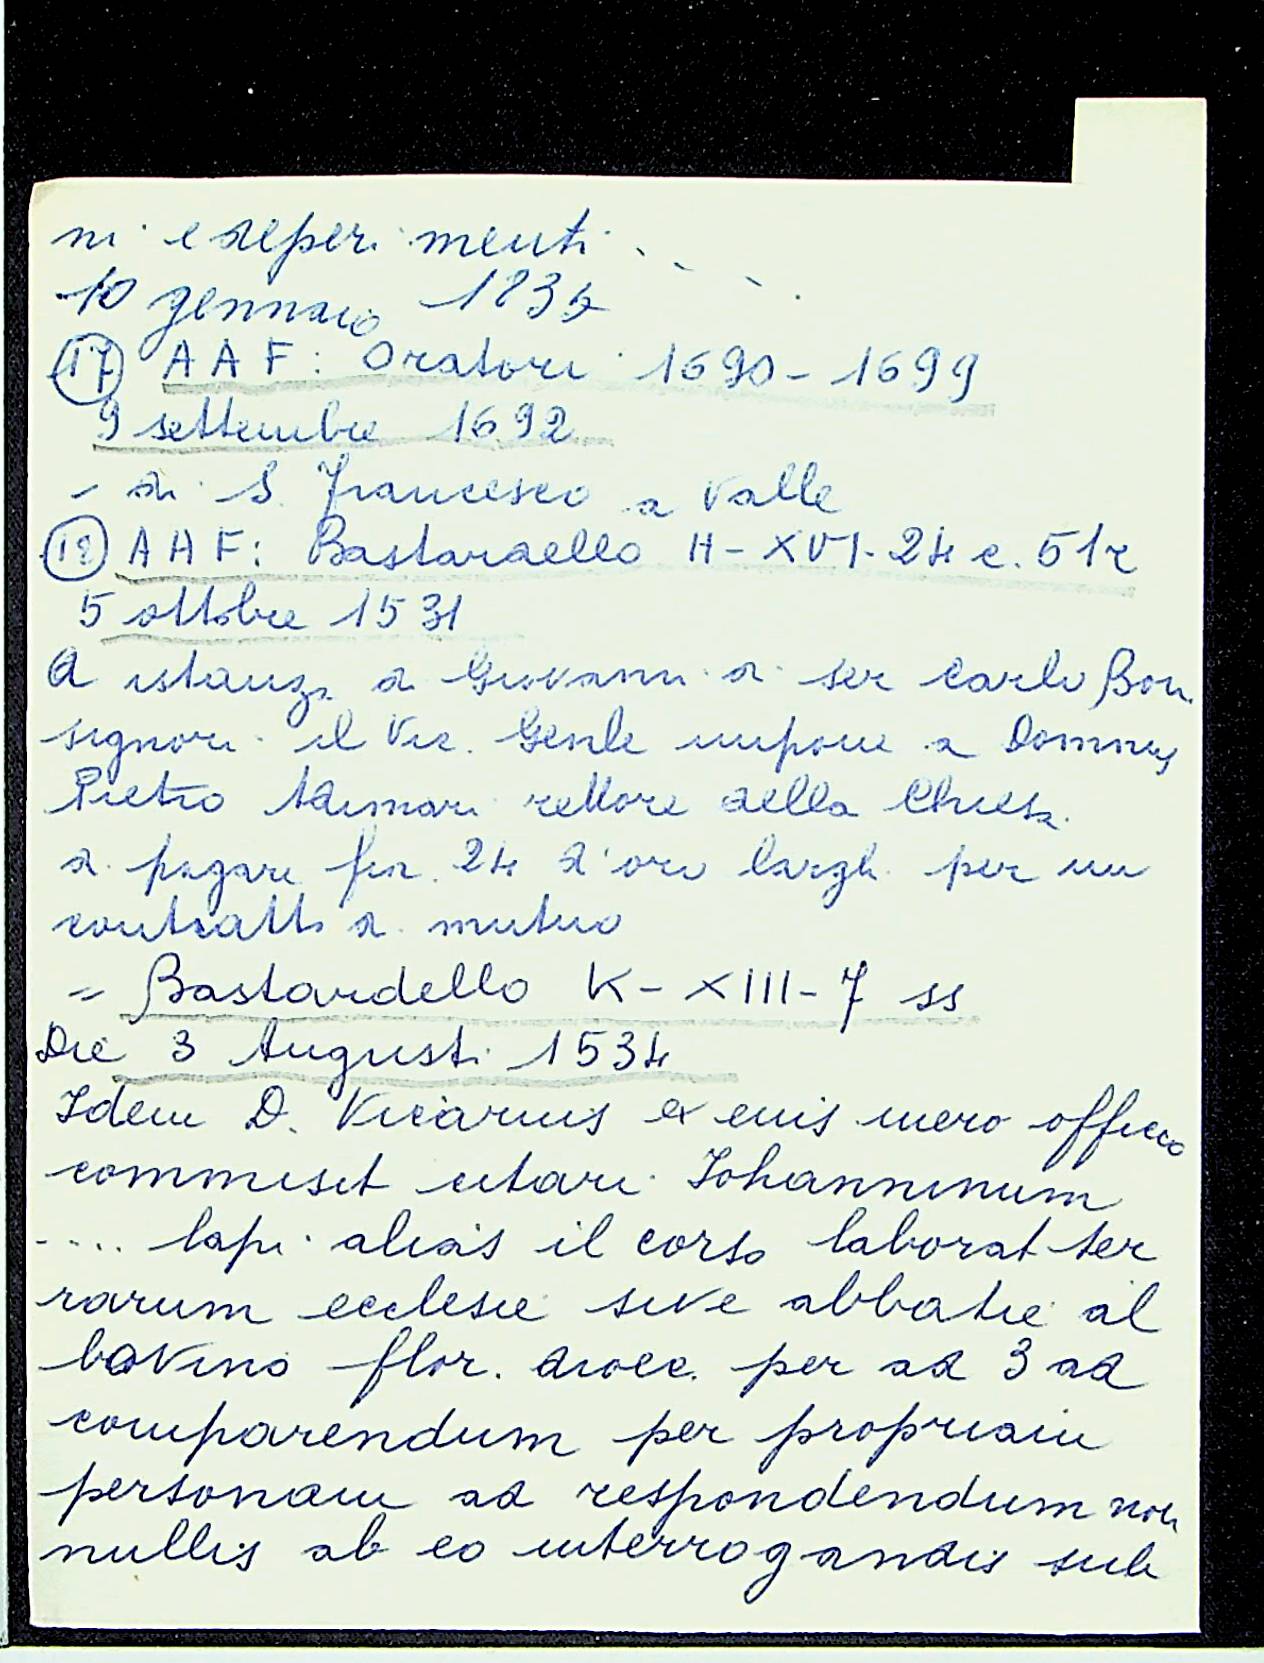 ni e deperimenti . . . .
10 gennaio 1834
17 AAF: Oratori 1690-1699
9 settembre 1692
- di S. Francesco a Valle
18 AAF: Bastardello H-XVI-24 c. 51r
5 ottobre 1531
A istanza di Giovanni di ser Carlo Bon
signori il Vic. Genle impone a Domnus
Pietro Adimari rettore della Chiesa
di pagare fior. 24 d'oro larghi per un
contratto di mutuo
= Bastardello K-XIII-7 ss
Die 3 Augusti 1534
Idem D. Vicarius ex eius mero officio
commisit citari Johanninum
.... lapi alias il corso laborat ter
rarum ecclesie sive abbatie al
bovino flor. diocc. per ad 3 ad
comparendum per propriam
personam ad respondendum non
nullis ab eo interrogandis sub